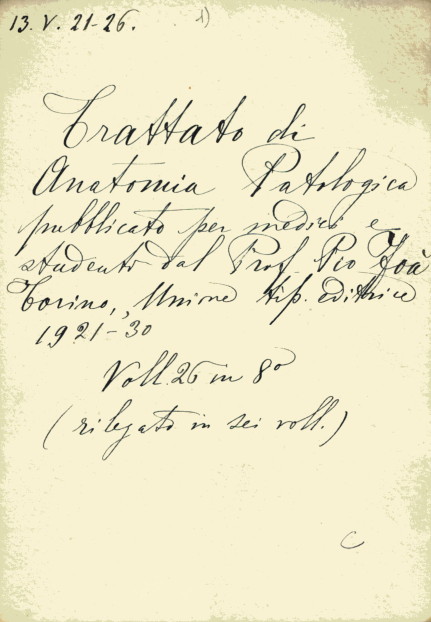 13. V. 21-26. 1)
Trattato di
Anatomia Patologica
pubblicato per medici e
studenti dal Prof. Pio Foà
Torino, Unione tip. editrice
1921-30
Voll. 26 in 8°
(rilegato in sei voll.)
C